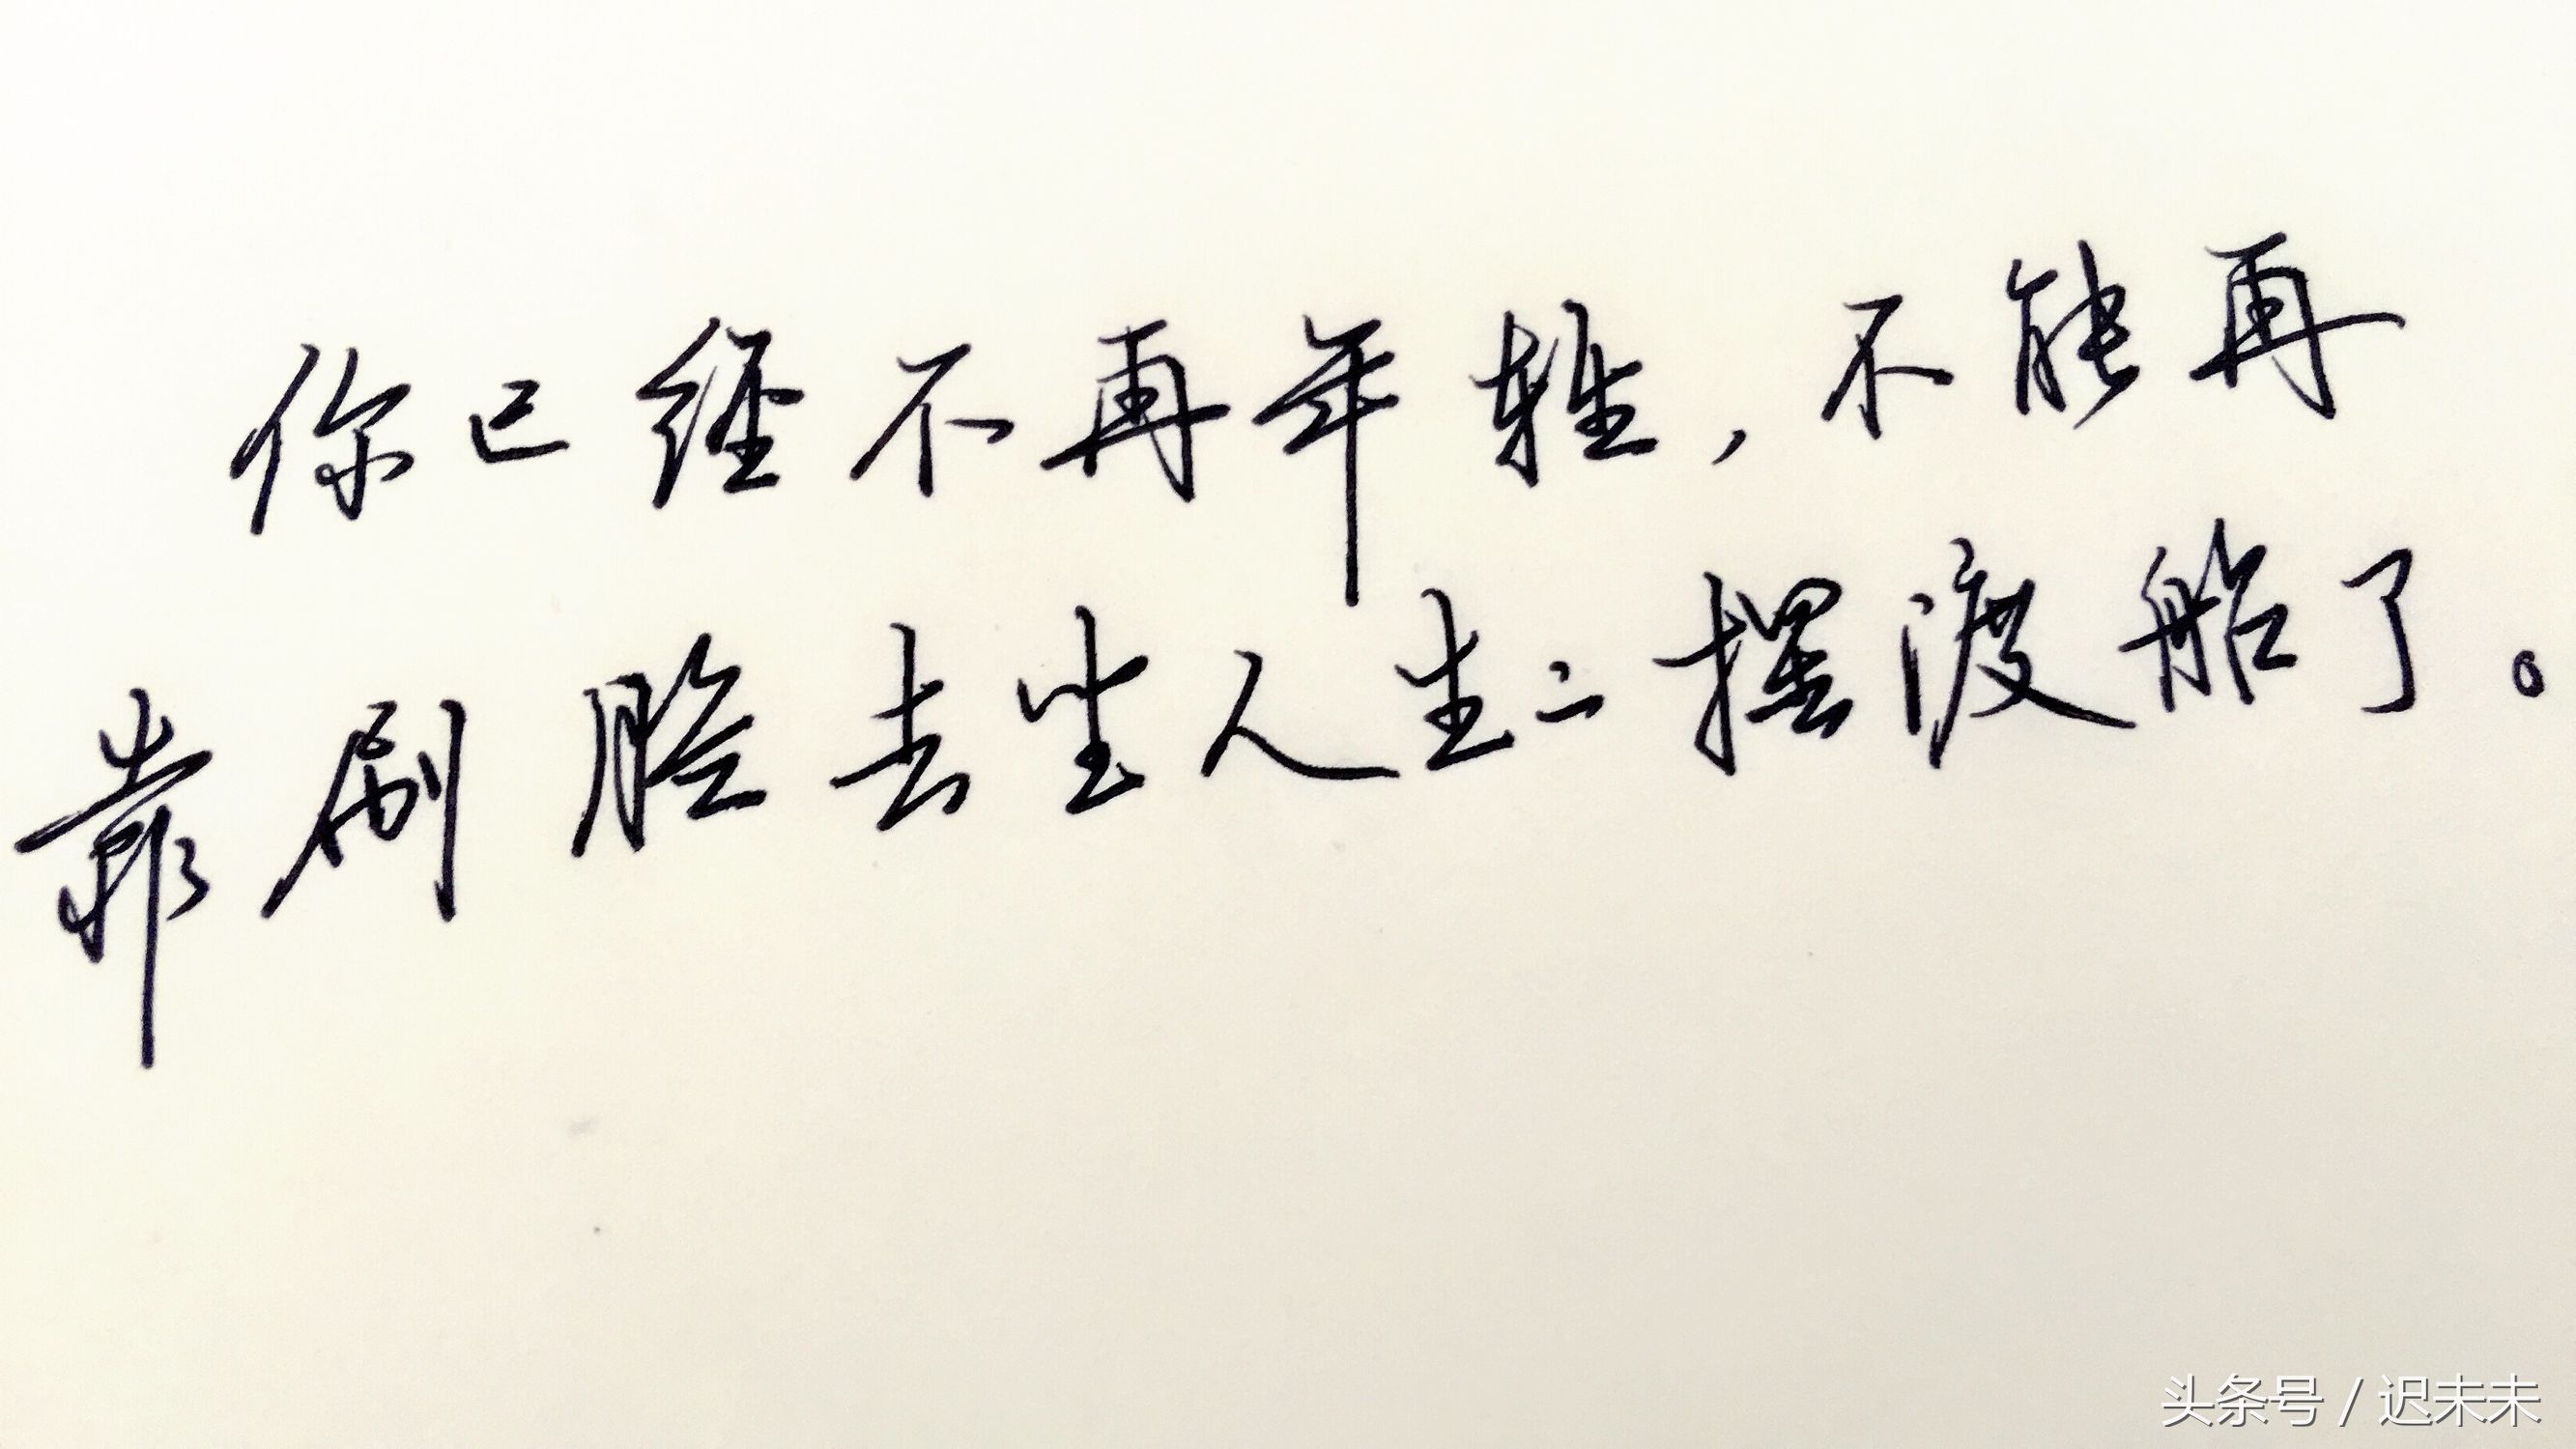 你已经不再年轻，不能再
靠刷脸去坐人生之摆渡船了。
头条号 / 迟未未